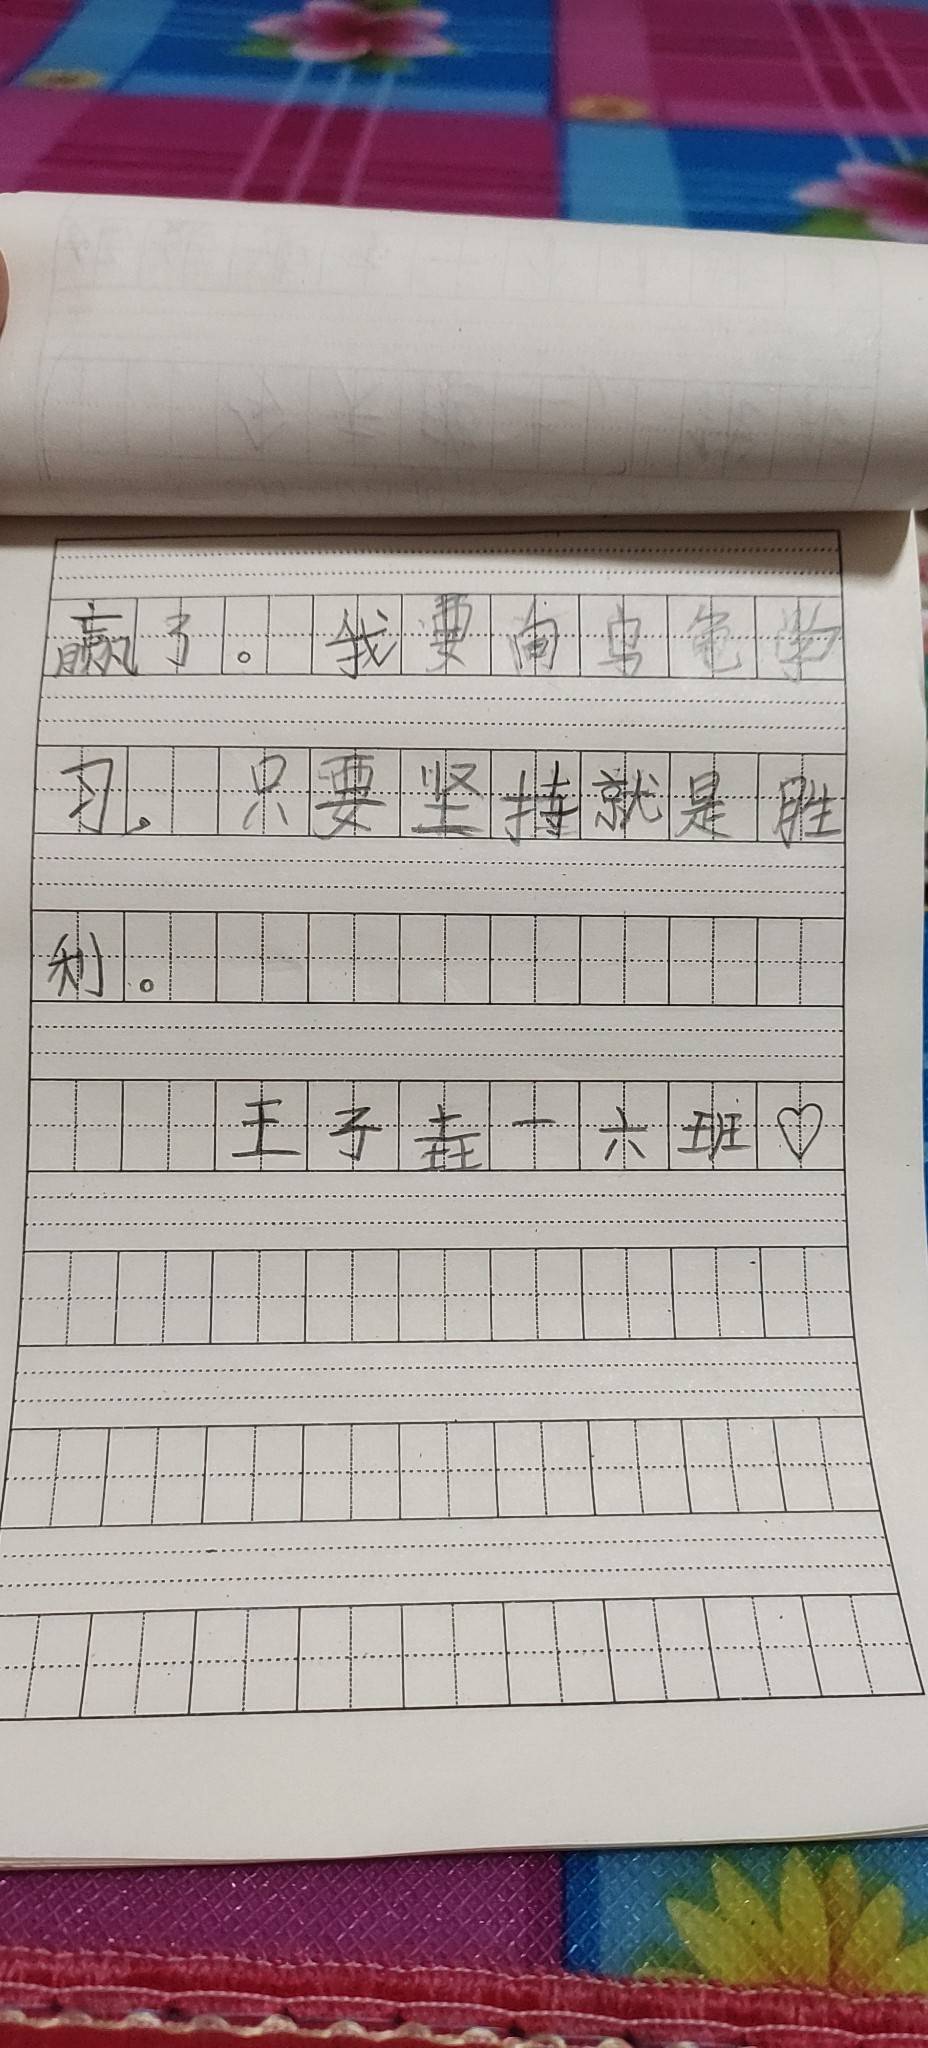 赢了。我要向乌龟学
习，只要坚持就是胜
利。
王子壵一六班♡